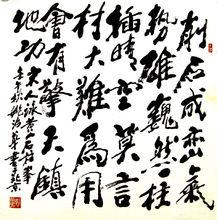 削石成峦氣
勢雄巍然一柱
插晴空莫言
材大難為用
會有擎天鎮
地功 宋人詠 石柱峯